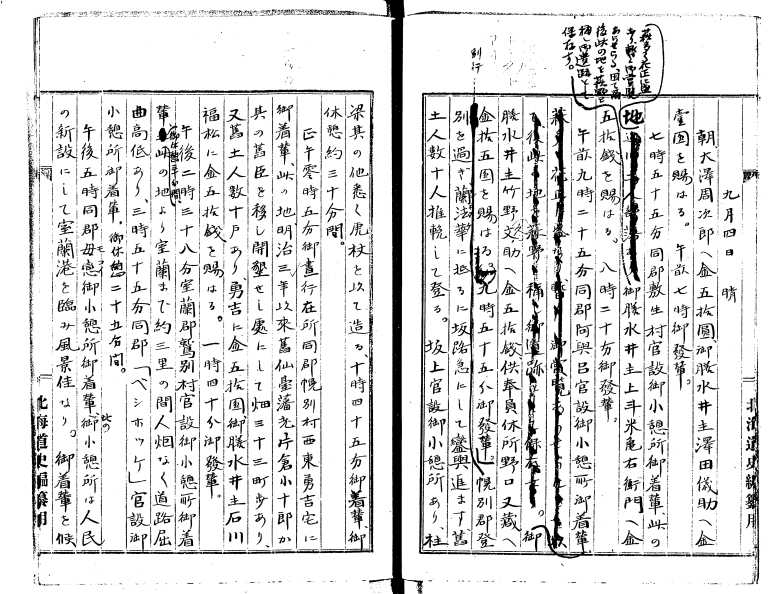 九月四日 晴
朝大澤周次郎へ金五拾圓、御膳水井主澤田儀助へ金
壹圓を賜はる。午前七時御發輦。
七時五十五分同郡敷生村官設御小憩所御着輦、此の
地
御膳水井主上斗米亀右衞門へ金
五拾錢を賜はる。八時二十分御發輦。
午前九時二十五分同郡阿與呂官設御小憩所御着輦
御
膳水井主竹野文助へ金五拾錢供奉員休所野口又藏へ
金拾五圓を賜はる。九時五十五分御發輦。幌別郡登
別行
別を過ぎ蘭法華に抵るに坂路急にして鳳輿進まず、舊
土人數十人推輓して登る。坂上官設御小憩所あり、柱
梁其の他悉く虎杖を以て造る、十時四十五分御着輦、御
休憩約三十分間。
正午零時五分御晝行在所同郡幌別村西東勇吉宅に
御着輦、此の地明治三年以來舊仙臺藩士片倉小十郎か
其の舊臣を移し開墾せし處にして畑三十三町歩あり、
又舊土人數十戸あり勇吉に金五拾圓御膳水井主石川
福松に金五拾錢を賜はる。一時四十分御發輦。
午後二時三十八分室蘭郡鷲別村官設御小憩所御着
輦、此の地より室蘭まで約三里の間人烟なく道路屈
曲高低あり、三時五十五分同郡「ペシホッケ」官設御
小憩所御着輦、御休憩二十五分間。
午後五時同郡母戀御小憩所御着輦、此の御小憩所は人民
モコイ
の新設にして室蘭港を臨み風景佳なり。御着輦を候
北海道史編纂用
北海道史編纂用